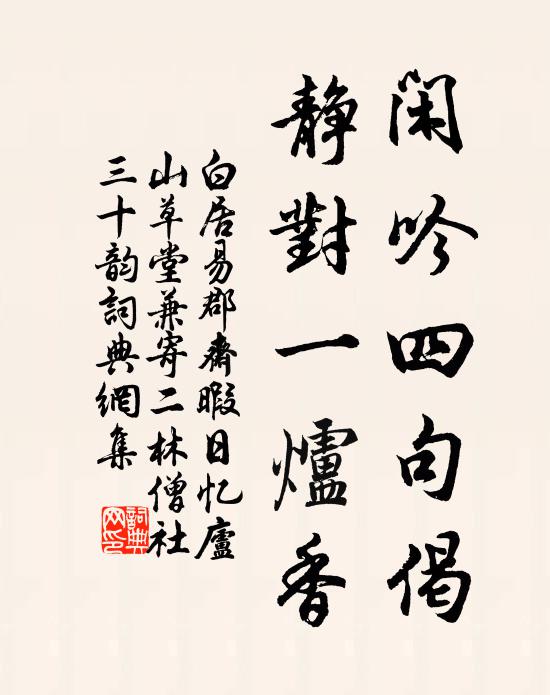 閑吟四句偈
靜對一爐香
白居易郡齋暇日忆廬
山草堂兼寄二林僧社
三十韵詞典網集
詞典
网印